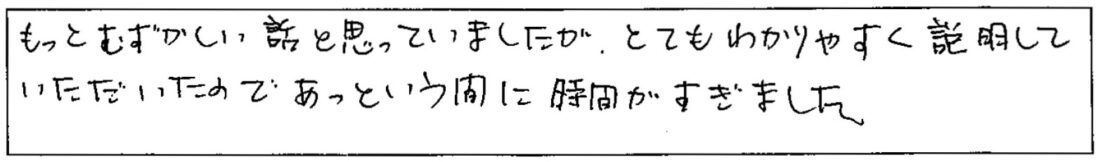 もっとむずかしい話と思っていましたが、とてもわかりやすく説明して
いただいたのであっという間に時間がすぎました